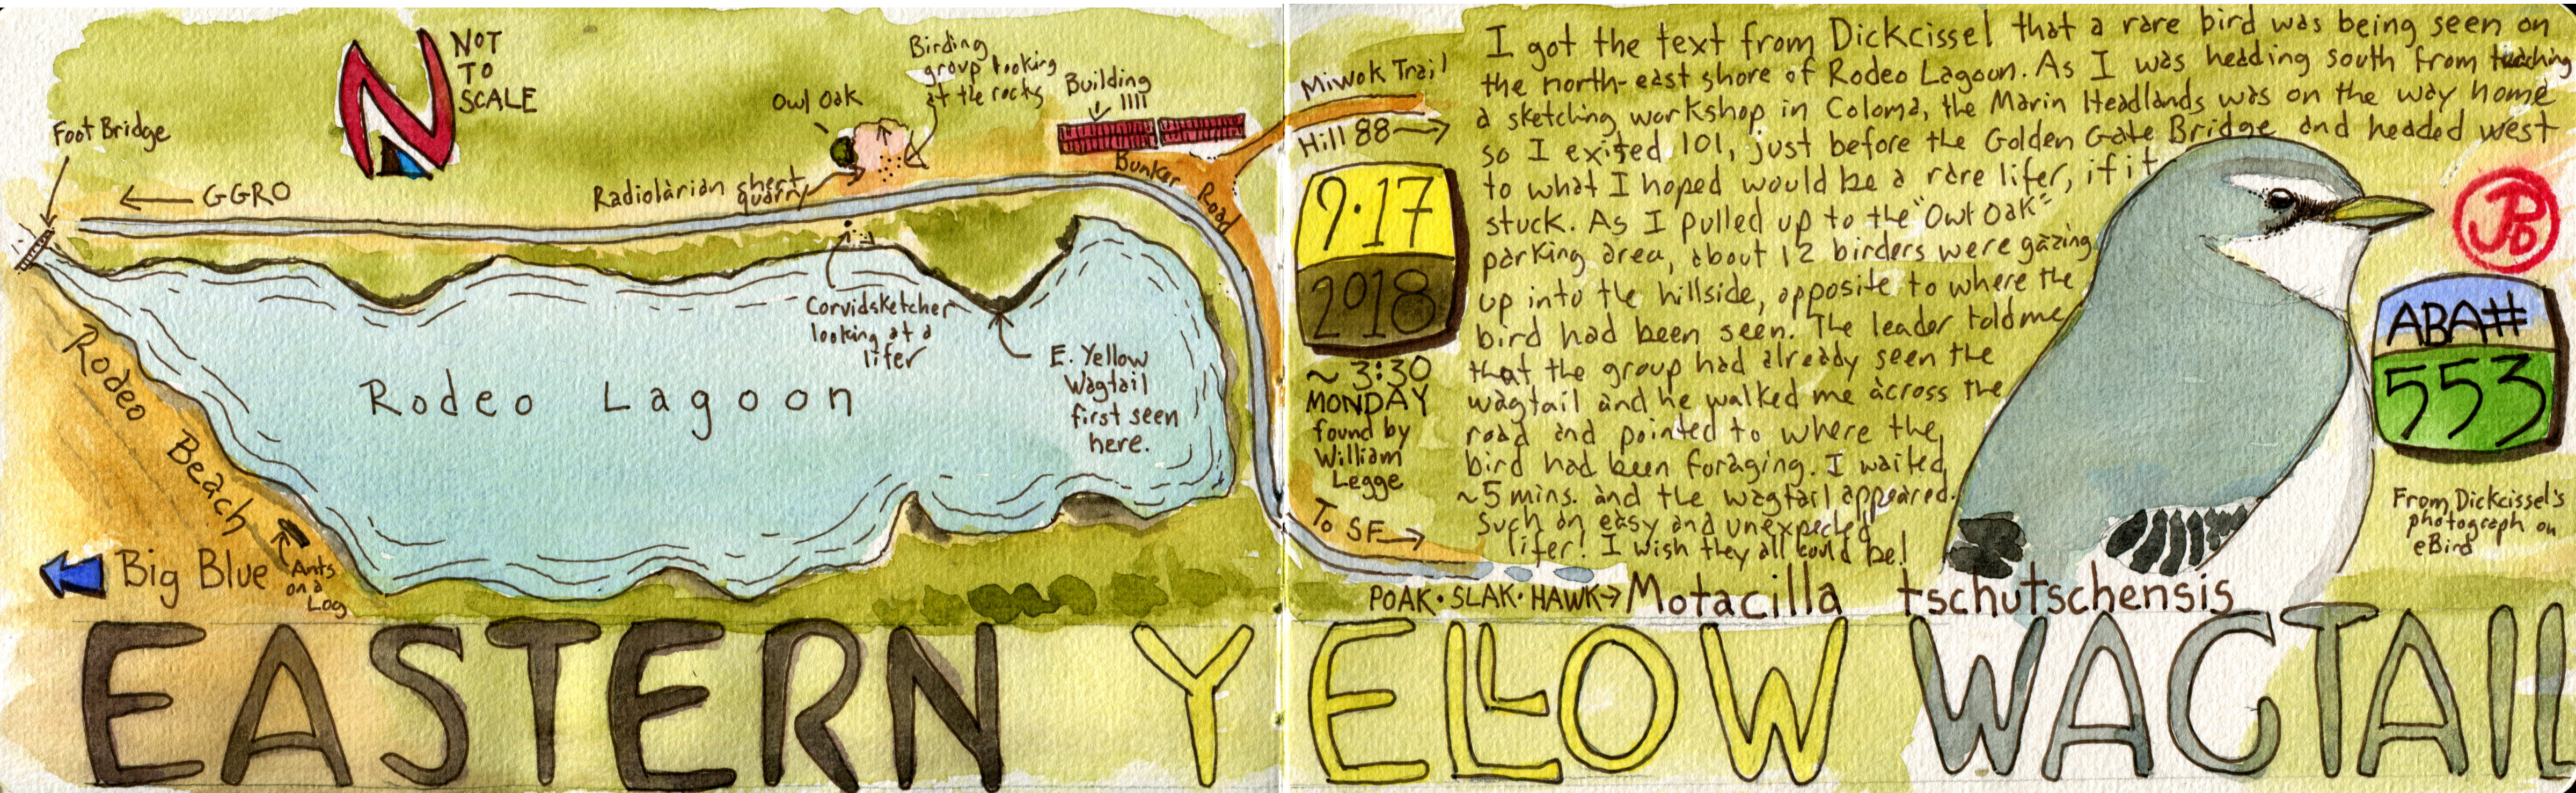 N
NOT
TO
SCALE
Foot Bridge
← GGRO
Radiolarian chert
quarry
Owl Oak
Birding
group looking
at the rocks
Building
Bunker Road
Corvidsketcher
looking at a
lifer
E. Yellow
Wagtail
first seen
here.
Rodeo Lagoon
Rodeo Beach
Big Blue
Ants
on a
Log
Miwok Trail
Hill 88 →
9·17
2018
~ 3:30
MONDAY
found by
William
Legge
To SF →
I got the text from Dickcissel that a rare bird was being seen on
the north-east shore of Rodeo Lagoon. As I was heading south from teaching
a sketching workshop in Coloma, the Marin Headlands was on the way home
so I exited 101, just before the Golden Gate Bridge and headed west
to what I hoped would be a rare lifer, if it
stuck. As I pulled up to the "Owl Oak"
parking area, about 12 birders were gazing
up into the hillside, opposite to where the
bird had been seen. The leader told me
that the group had already seen the
wagtail and he walked me across the
road and pointed to where the
bird had been foraging. I waited
~5 mins. and the wagtail appeared.
Such an easy and unexpected
lifer! I wish they all could be!
JPD
ABA#
553
From Dickcissel's
photograph on
eBird
POAK · SLAK · HAWK → Motacilla tschutschensis
EASTERN YELLOW WAGTAIL